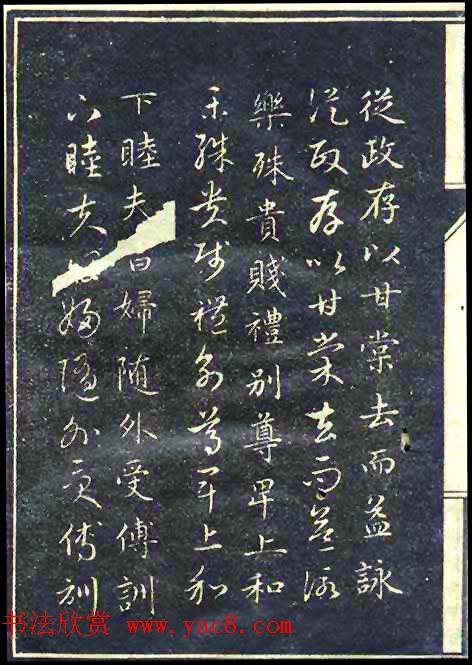 從政存以甘棠去而益詠
從政存以甘棠去而益詠
樂殊貴賤禮別尊卑上和
樂殊貴賤禮別尊卑上和
下睦夫婦随外受傅訓
下睦夫婦随外受傅訓
书法欣赏 www.yac8.com